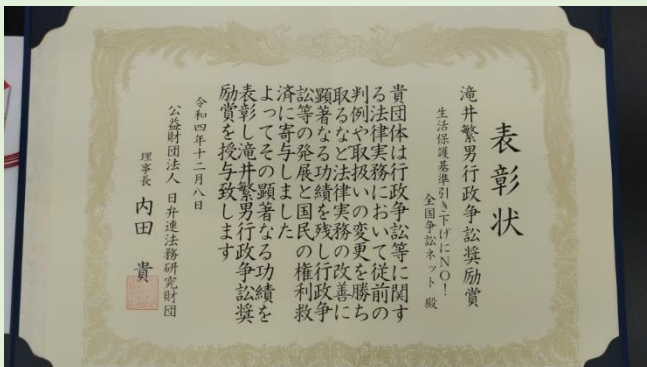 表彰状
滝井繁男行政争訟奨励賞
生活保護基準引き下げにNO!
全国争訟ネット 殿
貴団体は行政争訟等に関す
る法律実務において従前の
判例や取扱いの変更を勝ち
取るなど法律実務の改善に
顕著なる功績を残し行政争
訟等の発展と国民の権利救
済に寄与しました
よってその顕著なる功績を
表彰し滝井繁男行政争訟奨
励賞を授与致します
令和四年十二月八日
公益財団法人 日弁連法務研究財団
理事長 内田 貴